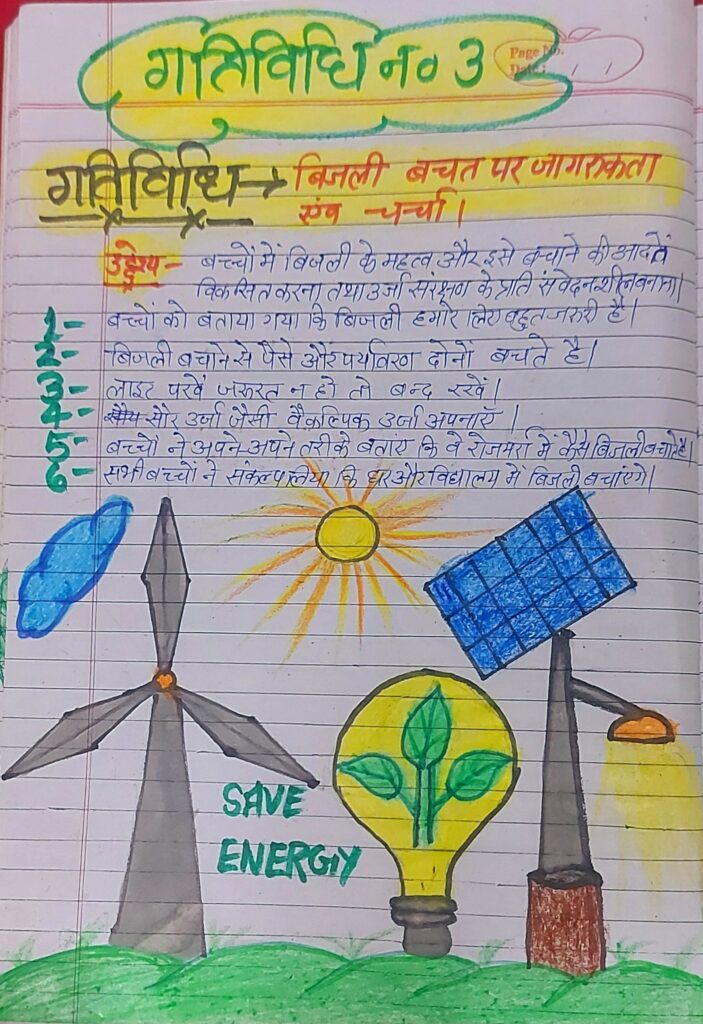 गतिविधि न० 3
Page No.
Date: / /
गतिविधि → बिजली बचत पर जागरुकता
एंव चर्चा।
उद्देश्य - बच्चों में बिजली के महत्व और इसे बचाने की आदतें
विकसित करना तथा उर्जा संरक्षण के प्रति संवेदनशील बनाना।
1- बच्चों को बताया गया कि बिजली हमारे लिए बहुत जरुरी है।
2- बिजली बचाने से पैसे और पर्यावरण दोनों बचते है।
3- लाइट पंखें जरुरत न हो तो बन्द रखें।
4- सौर उर्जा जैसी वैकल्पिक उर्जा अपनाएँ।
5- बच्चों ने अपने-अपने तरीके बताएं कि वे रोजमर्रा में कैसे बिजली बचाते है।
6- सभी बच्चों ने संकल्प लिया कि घर और विद्यालय में बिजली बचाएंगे।
SAVE
ENERGY